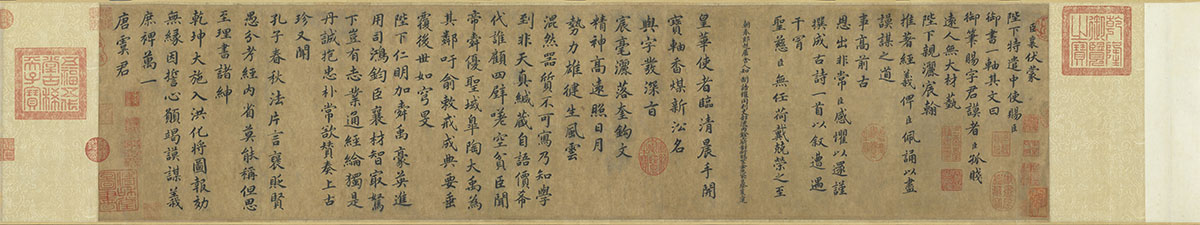 臣襄伏蒙
陛下特遣中使賜臣
御書一軸其文曰
御筆賜字君謨者臣孤賤
遠人無大材藝
陛下親灑宸翰
推著經義俾臣佩誦以盡
謨謀之道
事高前古
恩出非常臣感懼以還謹
撰成古詩一首以叙遭遇
干冒
聖慈臣無任荷戴兢榮之至
皇華使者臨清晨手開
寶軸香煤新沿名
與字發深旨
宸毫灑落奎鉤文
精神高遠照日月
勢力雄健生風雲
混然器質不可寫乃知學
到非天真緘藏自語價希
代誰顧四壁嗟空貧臣聞
帝舜優聖域皐陶大禹為
其鄰吁俞敕戒成典要垂
覆後世如穹旻
陛下仁明加舜禹豪英進
用司鴻鈞臣襄材智最駑
下豈有志業通經綸獨是
丹誠抱忠朴常欲贊奏上古
珍又聞
孔子春秋法片言褒貶賢
愚分考經內省莫能稱但思
至理書諸紳
乾坤大施入洪化將圖報効
無緣因誓心願竭謨謀義
庶裨萬一
唐虞君